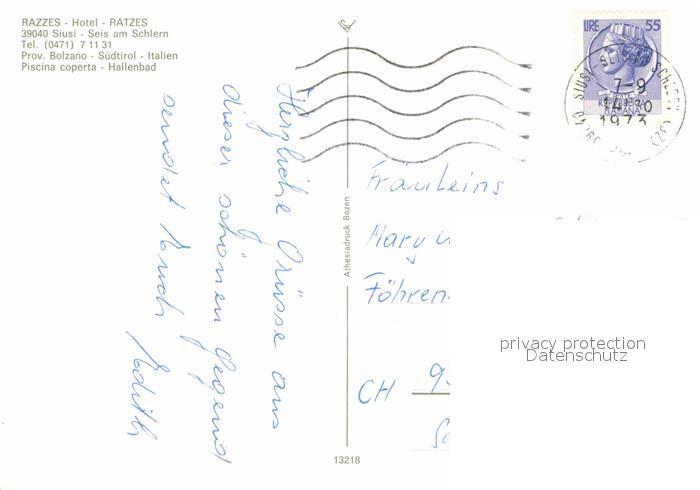 RAZZES - Hotel - RATZES
39040 Siusi - Seis am Schlern
Tel. (0471) 7 11 31
Prov. Bolzano - Südtirol - Italien
Piscina coperta - Hallenbad
Herzliche Grüsse aus
dieser schönen Gegend
sendet Euch Edith
Athesiadruck Bozen
13218
LIRE 55
7-9
1973
Fräuleins
Mary
Föhren
CH 9
privacy protection
Datenschutz